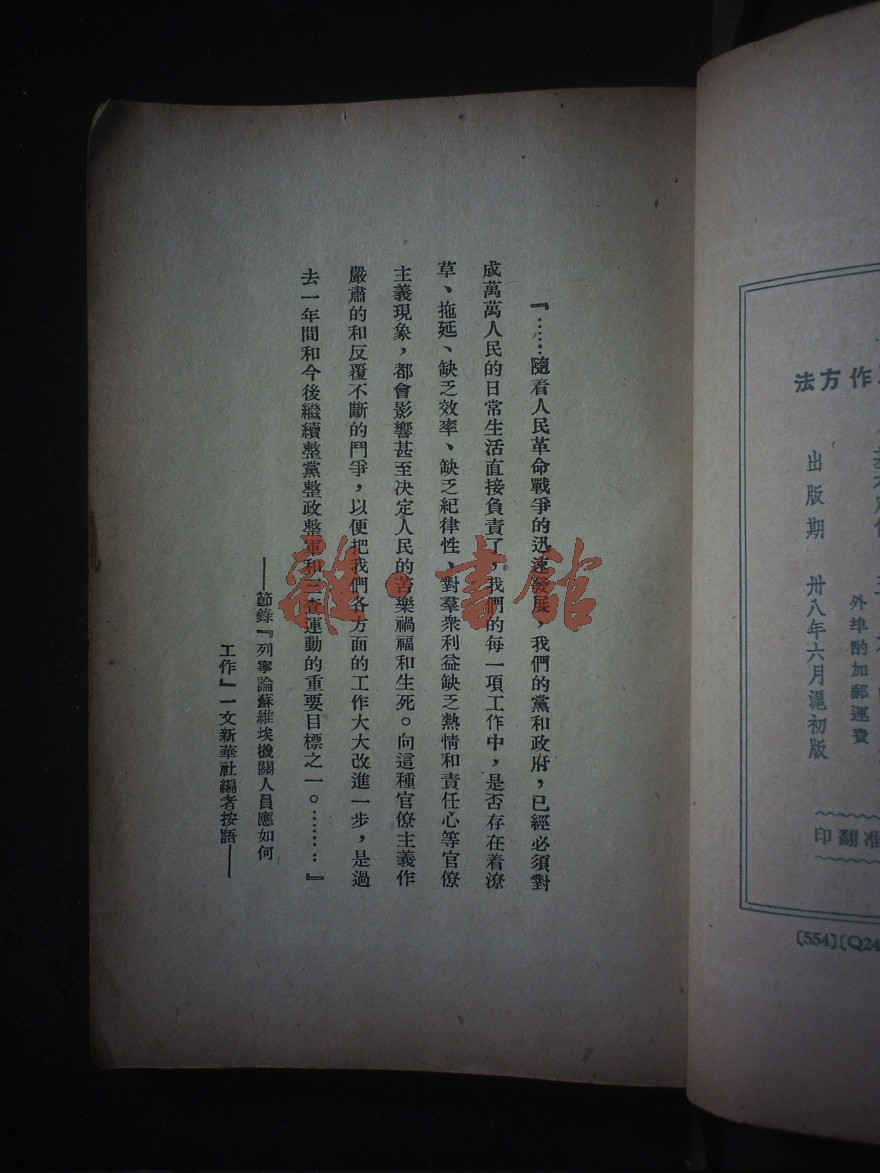 『……隨着人民革命戰爭的迅速發展，我們的黨和政府，已經必須對
成萬萬人民的日常生活直接負責了，我們的每一項工作中，是否存在着潦
草、拖延、缺乏效率、缺乏紀律性、對羣衆利益缺乏熱情和責任心等官僚
主義現象，都會影響甚至決定人民的苦樂禍福和生死。向這種官僚主義作
嚴肅的和反覆不斷的鬥爭，以便把我們各方面的工作大大改進一步，是過
去一年間和今後繼續整黨整政整軍和三查運動的重要目標之一。……：』
——節錄『列寧論蘇維埃機關人員應如何
工作』一文新華社編者按語——
雜·書館
作方法
外埠酌加郵運費
出版期 卅八年六月滬初版
准翻印
〔554〕〔Q24